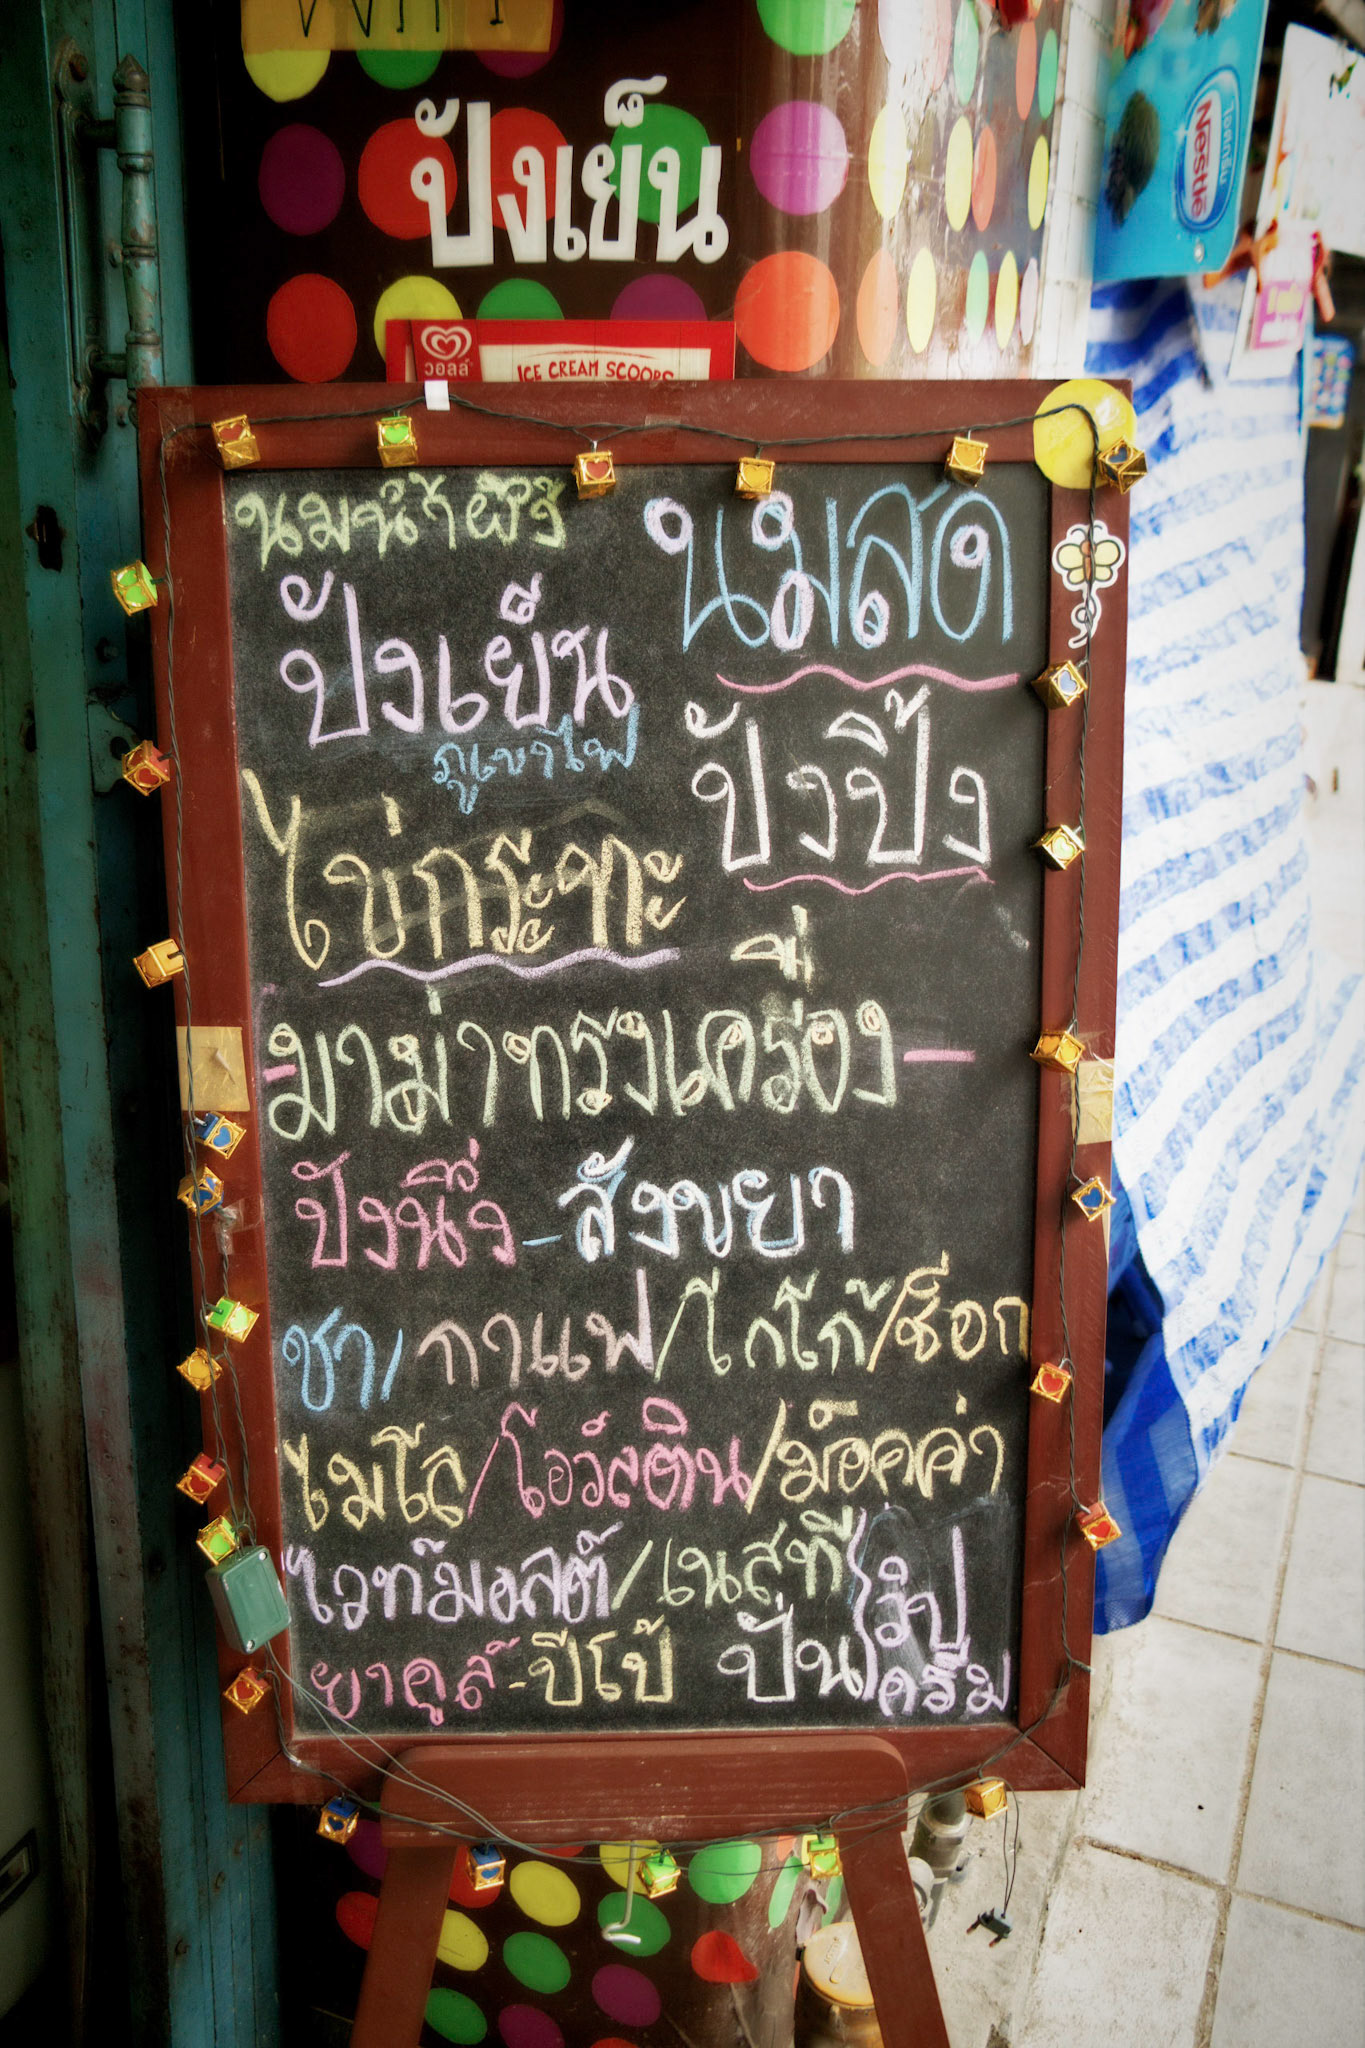 ปังเย็น
วอลล์
ICE CREAM SCOOPS
Nestle
ไอศกรีม
นมน้ำผึ้ง
นมสด
ปังเย็น
ภูเขาไฟ
ปังปิ้ง
ไข่กระทะ
มาม่าทรงเครื่อง-
ปังนึ่ง-สังขยา
ชา/กาแฟ/โกโก้/ช็อก
ไมโล/โอวัลติน/ม็อคค่า
ไวท์มอลต์/เนสที
ยาคูลท์-ปีโป้ ปั่น
วิป
ครีม